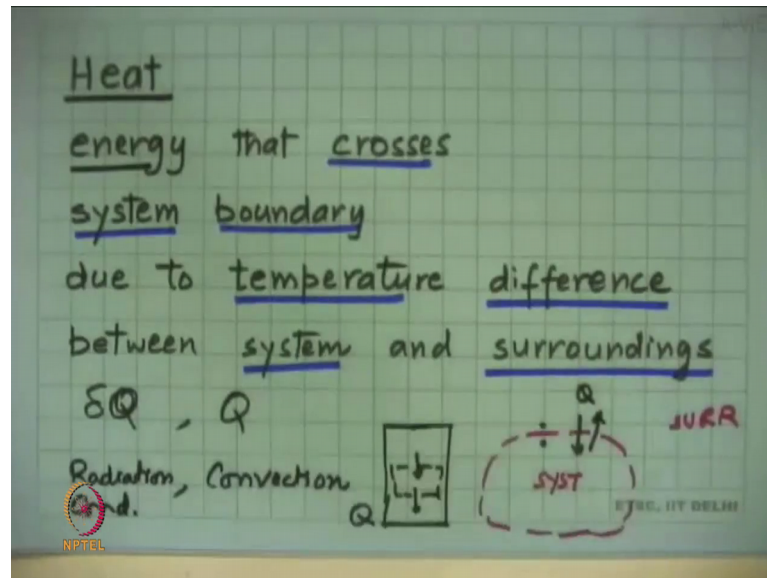 Heat
energy that crosses
system boundary
due to temperature difference
between system and surroundings
δQ , Q
Q
SURR
SYST
Radiation, Convection
Cond.
Q
ETSC, IIT DELHI
NPTEL